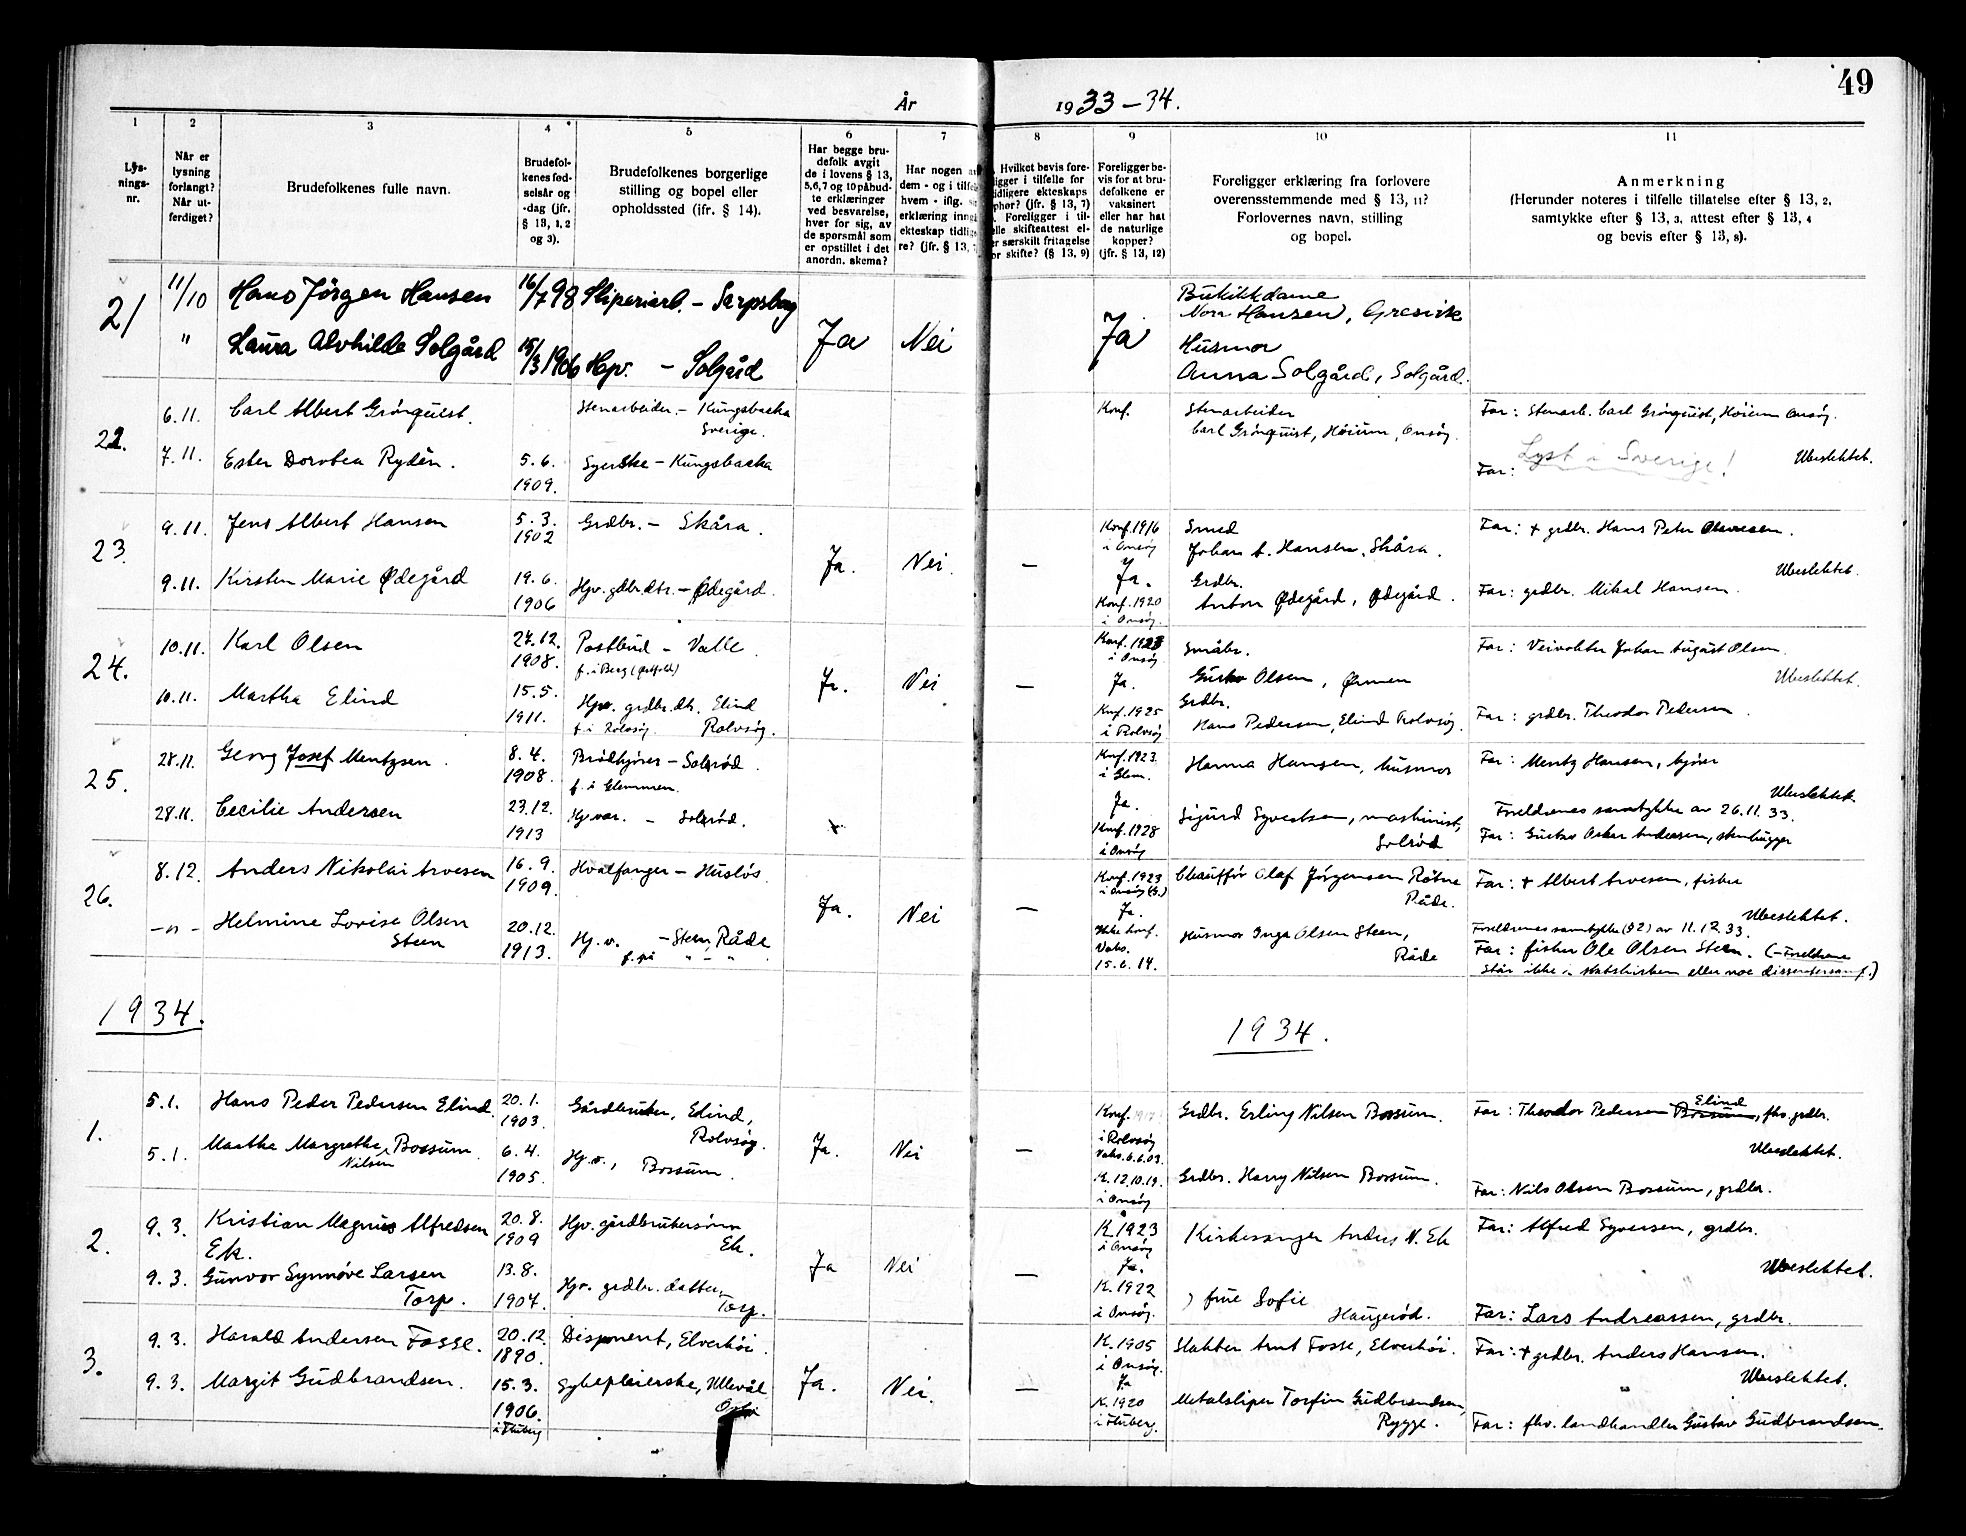 49
År 1933-34.
1 2 3 4 5 6 7 8 9 10 11
Lysnings-nr.
Når er lysning forlangt? Når utferdiget?
Brudefolkenes fulle navn.
Brudefolkenes fødselsår og -dag (jfr. § 13, 1, 2 og 3).
Brudefolkenes borgerlige stilling og bopel eller opholdssted (ifr. § 14).
Har begge brudefolk avgit de i lovens § 13, 5,6,7 og 10 påbudte erklæringer ved besvarelse, hver for sig, av de spørsmål som er opstillet i det anordn. skema?
Har nogen av dem - og i tilfelle hvem - iflg.
erklæring inng
ekteskap tidlige
re? (jfr. § 13, 7
Hvilket bevis fore-
ligger i tilfelle for
tidligere ekteskaps
ophør? (jfr. § 13, 7)
Foreligger i til-
elle skifteattest el-
er særskilt fritagelse
or skifte? (§ 13, 9)
Foreligger bevis for at brudefolkene er vaksinert eller har hat de naturlige kopper? (jfr. § 13, 12)
Foreligger erklæring fra forlovere overensstemmende med § 13, 11? Forlovernes navn, stilling og bopel.
Anmerkning
(Herunder noteres i tilfelle tillatelse efter § 13, 2, samtykke efter § 13, 3, attest efter § 13, 4 og bevis efter § 13, 8).
21 11/10 Hans Jörgen Hansen 16/7 98 Sliperiarb. - Sarpsborg Ja Nei Ja
Hansen, Gresvik
" Laura Alvhilde Solgård 15/3 1906 Hpv. - Solgård
Husmor
Anna Solgård, Solgård.
22. 6.11. Carl Albert Grönquist. Stenarbeider - Kungsbacka Sverige. Konf.
Stenarbeider
Carl Grönquist, Höium, Onsöy.
Far: Stenarb. Carl Grönquist, Höium Onsöy.
7.11. Ester Dorotea Rydén. 5.6. 1909. Syerske - Kungsbacka
Lyst i Sverige!
Ubeslektet.
Far:
23. 9.11. Jens Albert Hansen 5.3. 1902 Grdbr. - Skåra. Ja. Nei. - Konf. 1916 i Onsöy
Smed
Johan A. Hansen, Skåra.
Far: + grdbr. Hans Peter
Ubeslektet.
9.11. Kirsten Marie Ødegård 19.6. 1906 Hpv. gdbr.dtr. - Ødegård. Ja. Konf. 1920 i Onsöy.
Grdbr.
Anton Ødegård, Ødegård.
Far: grdbr. Mikal Hansen.
24. 10.11. Karl Olsen 27.12. 1908. Postbud - Valle. f. i Berg (Østfold) Ja. Nei - Konf. 1923 i Onsöy
Småbr.
Gustav Olsen, Ørmen
Far: Veivokter Johan August Olsen.
Ubeslektet.
10.11. Martha Elind 15.5. 1911. Hpv. grdbr.dtr. Elind Rolvsöy. f. i Rolvsöy. Ja. Konf. 1925 i Rolvsöy
Grdbr.
Hans Pedersen, Elind Rolvsöy.
Far: grdbr. Theodor Pedersen.
25. 28.11. Georg Josef Mentzsen. 8.4. 1908. Brödkjörer - Solröd. f. i Glemmen. Konf. 1923. i Glem.
Hanna Hansen, husmor
Far: Mentz Hansen, kjörer
Ubeslektet.
28.11. Cecilie Andersen 23.12. 1913 Hjvær. - Solröd. Ja. Konf. 1928 i Onsöy
Sigurd Syvertsen, maskinist, Solröd
Foreldrenes samtykke av 26.11.33.
Far: Gustav Oskar Andersen, stenhugger
26. 8.12. Anders Nikolai Arvesen 16.9. 1909. Hvalfanger - Huslös. Ja. Nei - Konf. 1923 i Onsöy Ja.
Chaufför Olaf Jörgensen Råde.
Far: + Albert Arvesen, fisker
Ubeslektet.
-"- Helmine Lovise Olsen Steen 20.12. 1913. Hj.v. - Steen, Råde f. på " - " Ikke konf. Vaks. 15.6.14.
Husmor Inga Olsen Steen, Råde
Foreldrenes samtykke (§2) av 11.12.33.
Far: fisker Ole Olsen Steen. (-Foreldrene
står ikke i statskirken eller noe dissentersamf.)
1934. 1934.
1. 5.1. Hans Peder Pedersen Elind. 20.1. 1903. Gårdbruker, Elind, Rolvsöy. Ja. Nei - Konf. i Rolvsöy Vaks. 6.6.03.
Grdbr. Erling Nilsen Bossum.
Far: Theodor Pedersen Bossum Elind, fhv. grdbr.
Ubeslektet.
5.1. Marthe Margrethe Nilsen Bossum. 6.4. 1905. Hj.v., Bossum. K. 12.10.19. i Onsöy
Grdbr. Harry Nilsen Bossum.
Far: Nils Olsen Bossum, grdbr.
2. 9.3. Kristian Magnus Alfredsen Ek. 20.8. 1909 Hjv. gårdbrukersönn Ek. Ja Nei - K. 1923 i Onsöy Ja.
Kirkesanger Anders N. Ek
Far: Alfred Syversen, grdbr.
Ubeslektet.
9.3. Gunvor Synnöve Larsen Torp. 13.8. 1904. Hjv. grdbr. datter, Torp. K. 1922 i Onsöy.
frue Sofie Haugeröd.
Far: Lars Andreassen, grdbr.
3. 9.3. Harald Andersen Fosse. 20.12. 1890. Disponent, Elverhöi. Ja. Nei. - K. 1905 i Onsöy. Ja
Slakter Arnt Fosse, Elverhöi.
Far: + grdbr. Anders Hansen.
Ubeslektet.
9.3. Margit Gudbrandsen. 15.3. 1906. i Fluberg Sykepleierske, Ullevål Oslo K. 1920 i Fluberg.
Metalsliper Torfin Gudbrandsen, Rygge.
Far: fhv. landhandler Gustav Gudbrandsen.